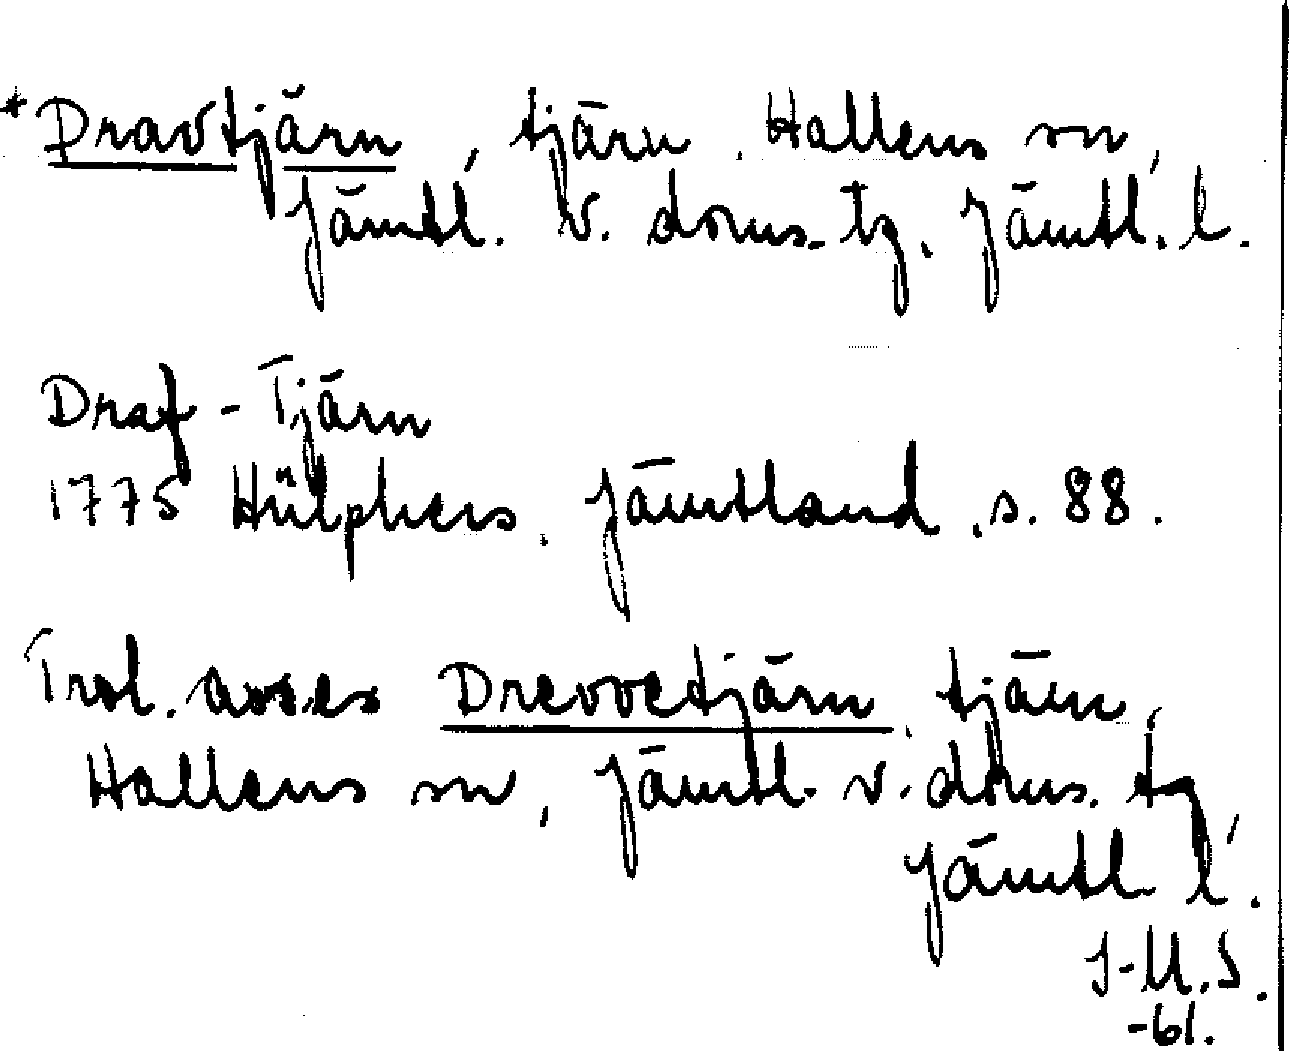 *Dravtjärn, tjärn, Hallens sn,
Jämtl. v. doms. tg, Jämtl. l.
Draf-Tjärn
1775 Hülphers, Jämtland, s. 88.
Trol. avses Drevvetjärn, tjärn,
Hallens sn, Jämtl. v. doms. tg,
Jämtl l.
J-M.S.
-61.